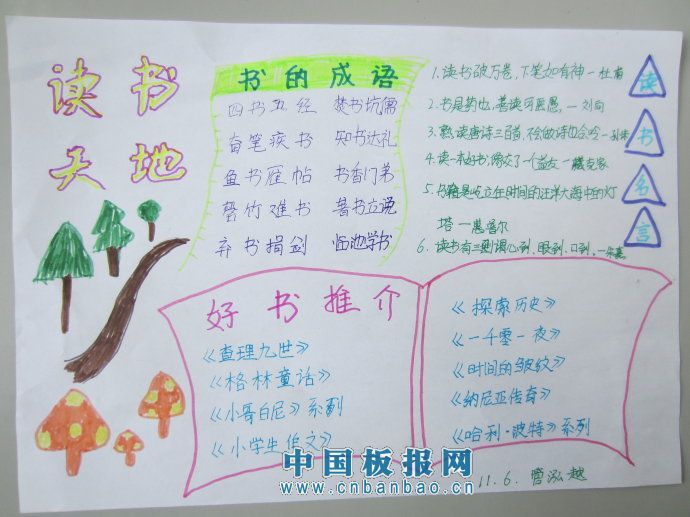 读书
天地
书的成语
四书五经 焚书坑儒
奋笔疾书 知书达礼
鱼书雁帖 书香门第
罄竹难书 著书立说
弃书捐剑 临池学书
1.读书破万卷,下笔如有神一杜甫
2.书是药也,善读可医愚。一刘向
3.熟读唐诗三百首,不会做诗也会吟一孙洙
4.读一本好书,像交了一个益友一臧克家
5.书籍是屹立在时间的汪洋大海中的灯
塔一惠普尔
6.读书有三到谓心到、眼到、口到,一朱熹
读
书
名
言
好书推介
《查理九世》
《格林童话》
《小哥白尼》系列
《小学生作文》
《探索历史》
《一千零一夜》
《时间的皱纹》
《纳尼亚传奇》
《哈利·波特》系列
中国板报网
www.cnbanbao.cn
11.6. 管泓越